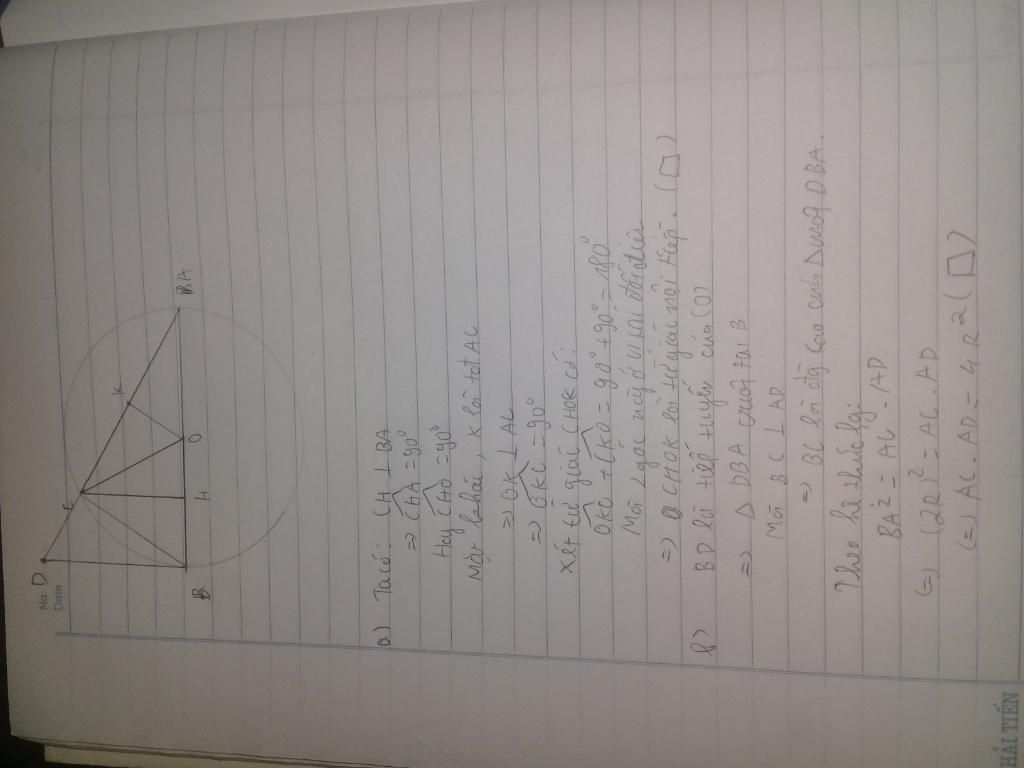 No.
Date
D
C
K
A
B
H
O
a) Ta có: CH ⊥ BA
=> CHA = 90°
Hay CHO = 90°
Mặt khác, K là tđ AC
=> OK ⊥ AC
=> OKC = 90°
Xét tứ giác CHOK có:
OKC + CHO = 90° + 90° = 180°
Mà 2 góc này ở vị trí đối diện
=> CHOK là tứ giác nội tiếp. (□)
b) BD là tiếp tuyến của (O)
=> Δ DBA vuông tại B
Mà BC ⊥ AD
=> BC là đg cao của Δ vuông DBA.
Theo hệ thức lg:
BA² = AC . AD
(=) (2R)² = AC . AD
(=) AC . AD = 4R² (□)
HẢI TIẾN